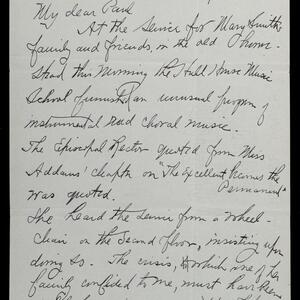 My dear Paul
At the service for Mary Smith's
family and friends, in the old Ohome-
stead this morning the Hull House Music
School furnished an unusual program of
instrumental and choral music.
The Episcopal Rector quoted from Miss
Addams' chapter on "The Excellent Becomes the
Permanent"
was quoted.
She heard the service from a wheel-
chair on the second floor, insisting upon
doing so. The crisis, to which one of her
family confided to me, must have been